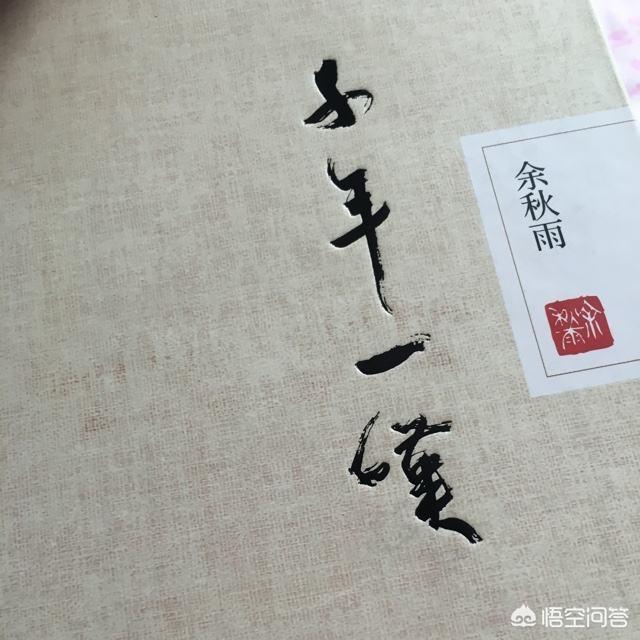 千年一嘆
余秋雨
余秋雨
悟空问答